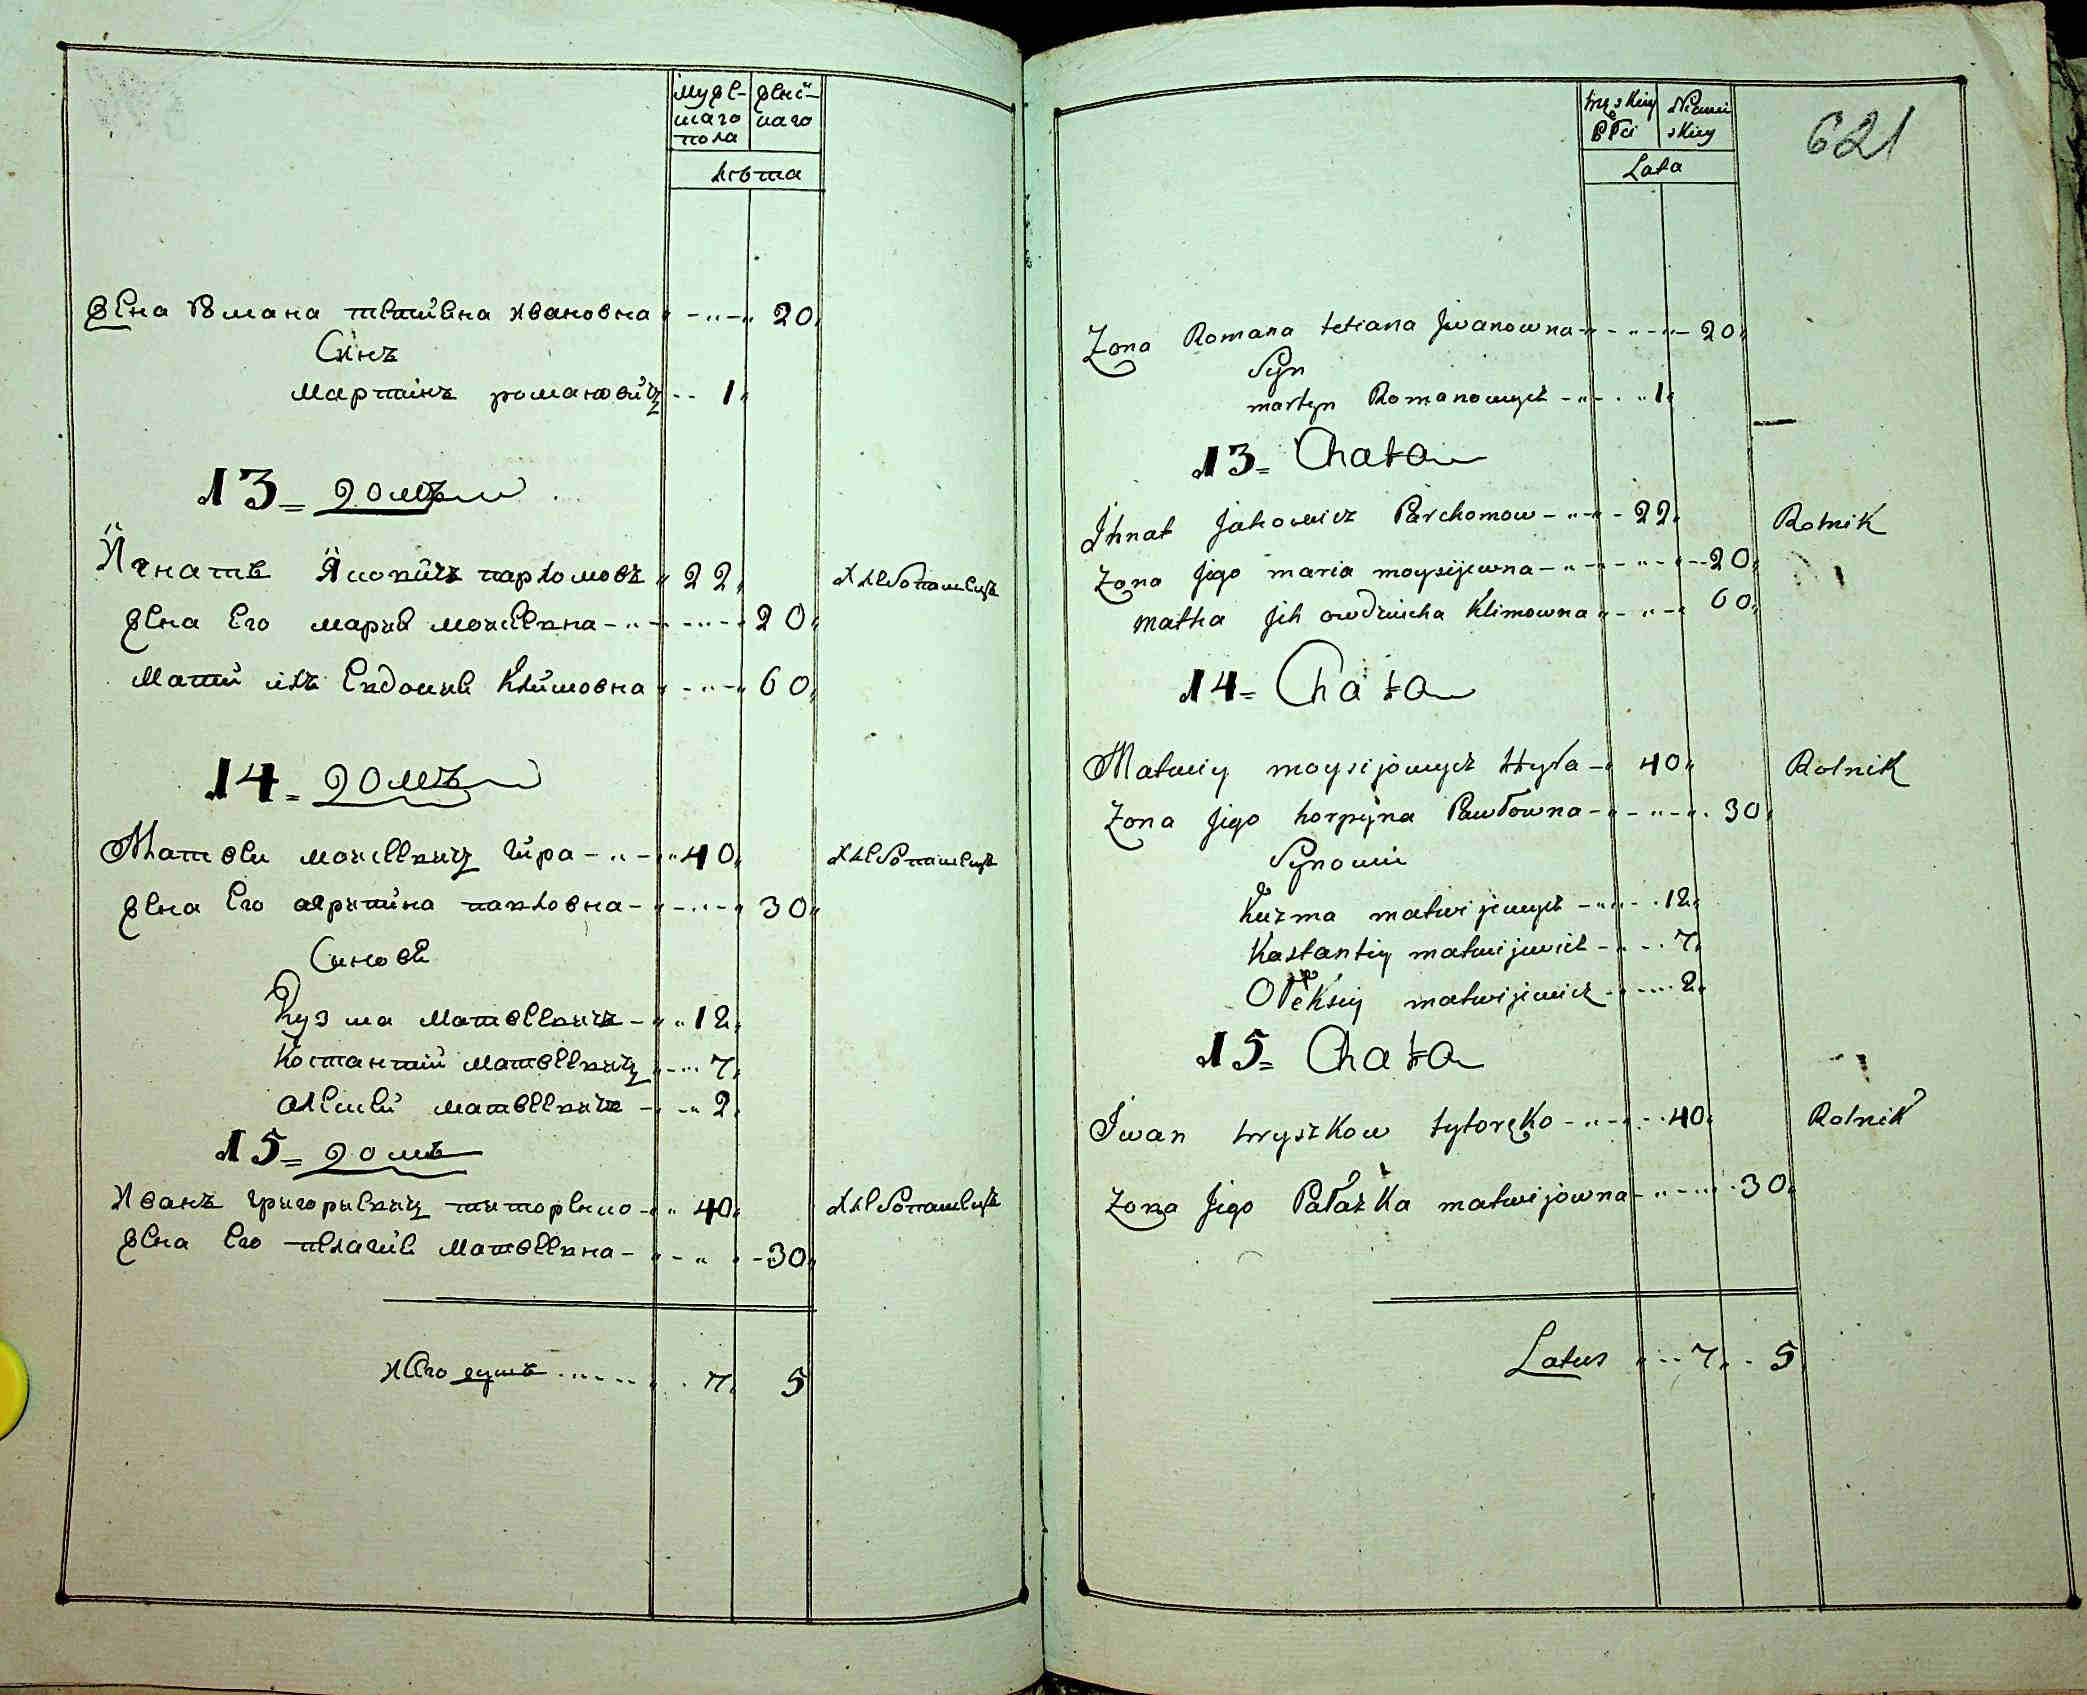 муже-
скаго
пола
женс-
каго
лѣта
Жена Романа тетияна Ивановна 20
Синъ
Мартинъ романовичъ 1
13 домъ
Игнатъ Яковичъ пархомовъ 22 Хлебопашецъ
Жена Его мария моисеевна 20
Мати ихъ Евдокия Климовна 60
14 домъ
Матвеи моисеевичъ Гира 40 Хлебопашецъ
Жена Его агрипина павловна 30
Синовя
Кузма Матвеевичъ 12
Костантий Матвеевичъ 7
Алексей матвеевичъ 2
15 домъ
Иванъ григориевичъ титоренко 40 Хлебопашецъ
Жена Его пелагия Матвеевна 30
Итого душъ 7 5
męskiey
Płci
Niewie
skiey
Lata
621
Zona Romana tetiana Jwanowna 20
Syn
martyn Romanowycz 1
13 Chata
Jhnat Jakowicz Parchomow 22 Rolnik
Zona Jigo maria moysijewna 20
matka Jih owdziucha Klimowna 60
14 Chata
Matwiy moysijowycz Hyra 40 Rolnik
Zona Jigo horpyna Pawłowna 30
Synowie
Kuzma matwijewycz 12
Kastantiy matwijewicz 7
Ołeksiy matwijewicz 2
15 Chata
Iwan hryszkow tytoręko 40 Rolnik
Zona Jigo Pałażka matwijowna 30
Latus 7 5